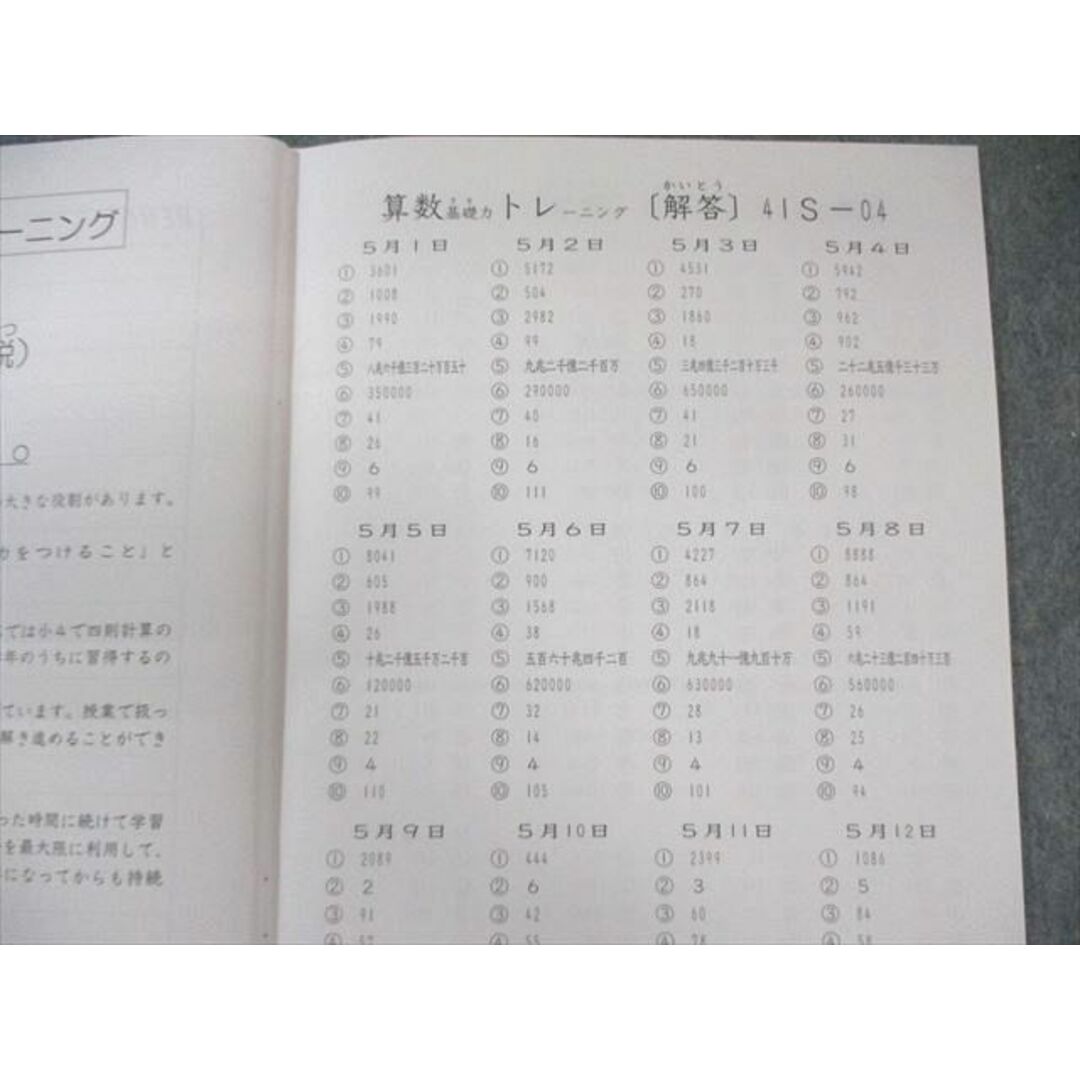 ーニング
税)
大きな役割があります。
力をつけること」と
では小4で四則計算の
年のうちに習得するの
ています。授業で扱っ
解き進めることができ
った時間に続けて学習
を最大限に利用して、
になってからも持続
かいとう
算数基礎力トレーニング〔解答〕41S-04
5月1日 5月2日 5月3日 5月4日
① 3601 ① 5172 ① 4531 ① 5942
② 1008 ② 504 ② 270 ② 792
③ 1990 ③ 2982 ③ 1860 ③ 962
④ 79 ④ 99 ④ 18 ④ 902
⑤ 八兆六千億三百二十万百五十 ⑤ 九兆二千億二千百万 ⑤ 三兆四億三千二百十万三千 ⑤ 二十二兆五億千三十三万
⑥ 350000 ⑥ 290000 ⑥ 650000 ⑥ 260000
⑦ 41 ⑦ 40 ⑦ 41 ⑦ 27
⑧ 26 ⑧ 16 ⑧ 21 ⑧ 31
⑨ 6 ⑨ 6 ⑨ 6 ⑨ 6
⑩ 99 ⑩ 111 ⑩ 100 ⑩ 98
5月5日 5月6日 5月7日 5月8日
① 8041 ① 7120 ① 4227 ① 8888
② 605 ② 900 ② 864 ② 864
③ 1988 ③ 1568 ③ 2118 ③ 1191
④ 26 ④ 38 ④ 18 ④ 59
⑤ 十兆二千億五千万二千百 ⑤ 五百六十兆四千二百 ⑤ 九兆九十一億九百十万 ⑤ 六兆二十三億二百四十万三百
⑥ 120000 ⑥ 620000 ⑥ 630000 ⑥ 560000
⑦ 21 ⑦ 32 ⑦ 28 ⑦ 26
⑧ 22 ⑧ 14 ⑧ 13 ⑧ 25
⑨ 4 ⑨ 4 ⑨ 4 ⑨ 4
⑩ 110 ⑩ 105 ⑩ 101 ⑩ 94
5月9日 5月10日 5月11日 5月12日
① 2089 ① 444 ① 2399 ① 1086
② 2 ② 6 ② 3 ② 5
③ 91 ③ 42 ③ 60 ③ 84
④ 57 ④ 55 ④ 78 ④ 58